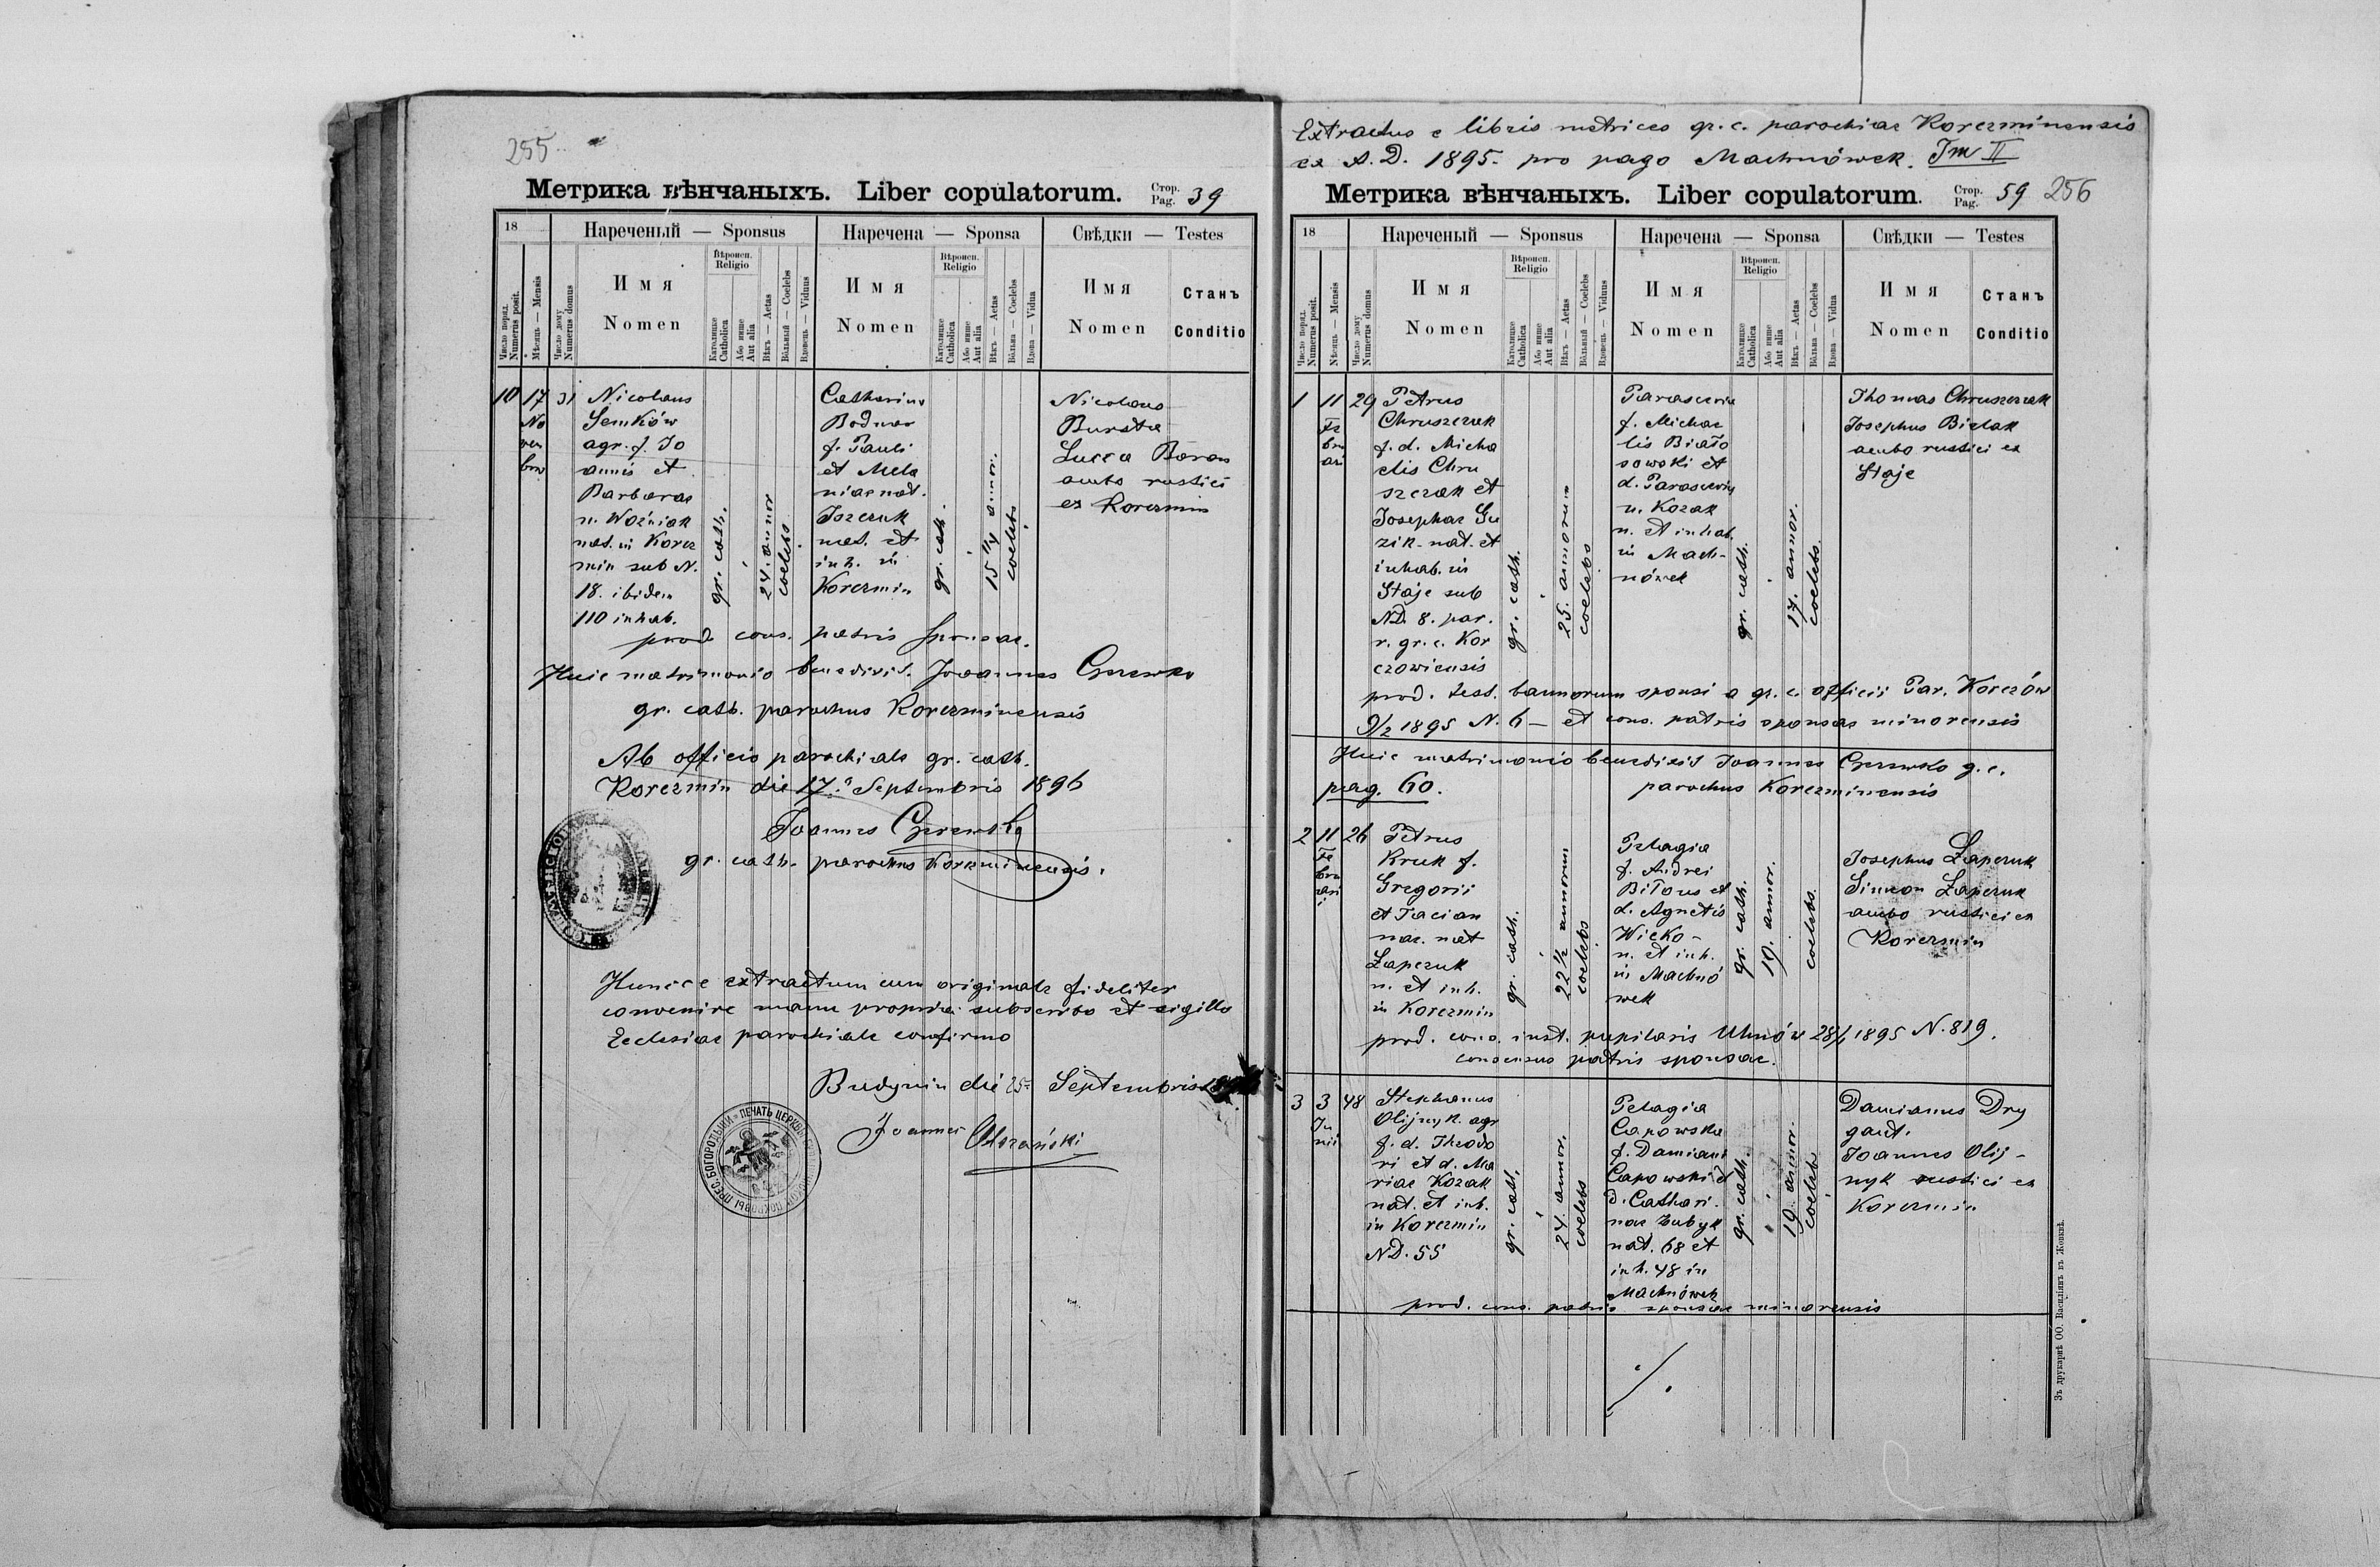 255
Метрика вѣнчаныхъ. Liber copulatorum. Стор. Pag. 39
18
Нареченый — Sponsus
Наречена — Sponsa
Свѣдки — Testes
Число поряд. Numerus posit.
Мѣсяць — Mensis
Число дому Numerus domus
Имя
Nomen
Вѣроисп. Religio
Католицке Catholica
Або инше Aut alia
Вѣкъ — Aetas
Вôльный — Coelebs
Вдовець — Viduus
Имя
Nomen
Вѣроисп. Religio
Католицке Catholica
Або инше Aut alia
Вѣкъ — Aetas
Вôльна — Coelebs
Вдова — Vidua
Имя
Nomen
Станъ
Conditio
10
17
No
vem
bris
31
Nicolaus
Semków
agr. f. Jo
annis et
Barbarae
n. Woźniak
nat. in Korcz
min sub N.
18. ibidem
110 inhab.
gr. cath.
24. annor
coelebs
Catharina
Bodnar
f. Pauli
et Mela
niae nat.
Iszczuk
nat. et
inh. in
Korczmin
gr. cath.
15 1/4 annor.
coelebs
Nicolaus
Burda
Lucca Baran
ambo rustici
ex Korczmin
prod. cons. patris sponsae.
Huic matrimonio benedixit Joannes
gr. cath. parochus Korczminensis
Ab officio parochiale gr. cath.
Korczmin die 17. Septembris 1896
Joannes
gr. cath. parochus Korczminensis.
Huncce extractum cum originale fideliter
convenire manu propria subscribo et sigillo
Ecclesiae parochiale confirmo
Budynin die 25 Septembris
Joannes
Extractus e libris metrices gr. c. parochiae Korczminensis
ex A. D. 1895. pro pago Machnówek. Tm II
Метрика вѣнчаныхъ. Liber copulatorum. Стор. Pag. 59 256
18
Нареченый — Sponsus
Наречена — Sponsa
Свѣдки — Testes
Число поряд. Numerus posit.
Мѣсяць — Mensis
Число дому Numerus domus
Имя
Nomen
Вѣроисп. Religio
Католицке Catholica
Або инше Aut alia
Вѣкъ — Aetas
Вôльный — Coelebs
Вдовець — Viduus
Имя
Nomen
Вѣроисп. Religio
Католицке Catholica
Або инше Aut alia
Вѣкъ — Aetas
Вôльна — Coelebs
Вдова — Vidua
Имя
Nomen
Станъ
Conditio
1
11
Fe
bru
ari
29
Petrus
Chruszczak
f. d. Micha
elis Chru
szczak et
Josephae Gu
zik. nat. et
inhab. in
Staje sub
ND. 8. par.
r. gr. c. Kor
czowiensis
gr. cath.
25. annorum
coelebs
Parascevia
f. Michae
lis Biało
sowski et
d. Parascevia
n. Kozak
n. et inhab.
in Mach-
nówek
gr. cath.
17. annor.
coelebs
Thomas Chruszczak
Josephus Bielak
ambo rustici ex
Staje
prod. test. bannorum sponsi a gr. c. officii Par. Korczów
9/2 1895 N. 6 — et cons. patris sponsae minorensis
Huic matrimonio benedixit Joannes g. c.
pag. 60. parochus Korczminensis
2
11
Fe
bru
ari
26
Petrus
Kruk f.
Gregorii
et Tacian
nae. nat
Łapczuk
n. et inh.
in Korczmin
gr. cath.
22 1/2 annorum
coelebs
Pelagia
f. Andrei
Biłous et
d. Agnetis
Wicko-
n. et inh.
in Machnó
wek
gr. cath.
19. annor.
coelebs.
Josephus Łapczuk
Simeon Łapczuk
ambo rustici ex
Korczmin
prod. cons. inst. pupilaris Uhnów 28/1 1895 N. 819.
consensus patris sponsae.
3
3
Ju
nii
48
Stephanus
Olijnyk. agr
f. d. Theodo
ri et d. Ma
riae Kozak
nat. et inh.
in Korczmin
ND. 55
gr. cath.
24. annor.
coelebs
Pelagia
Capowska
f. Damiani
Capowski et
d. Cathari.
nae Zubyk
nat. 68 et
inh. 48 in
Machnówek
gr. cath.
19. annor.
coelebs
Damianus Dry
gant.
Joannes Olij-
nyk rustici ex
Korczmin
prod. cons. patris sponsae minorensis
Зъ друкарнѣ ОО. Василіянъ въ Жовквѣ.